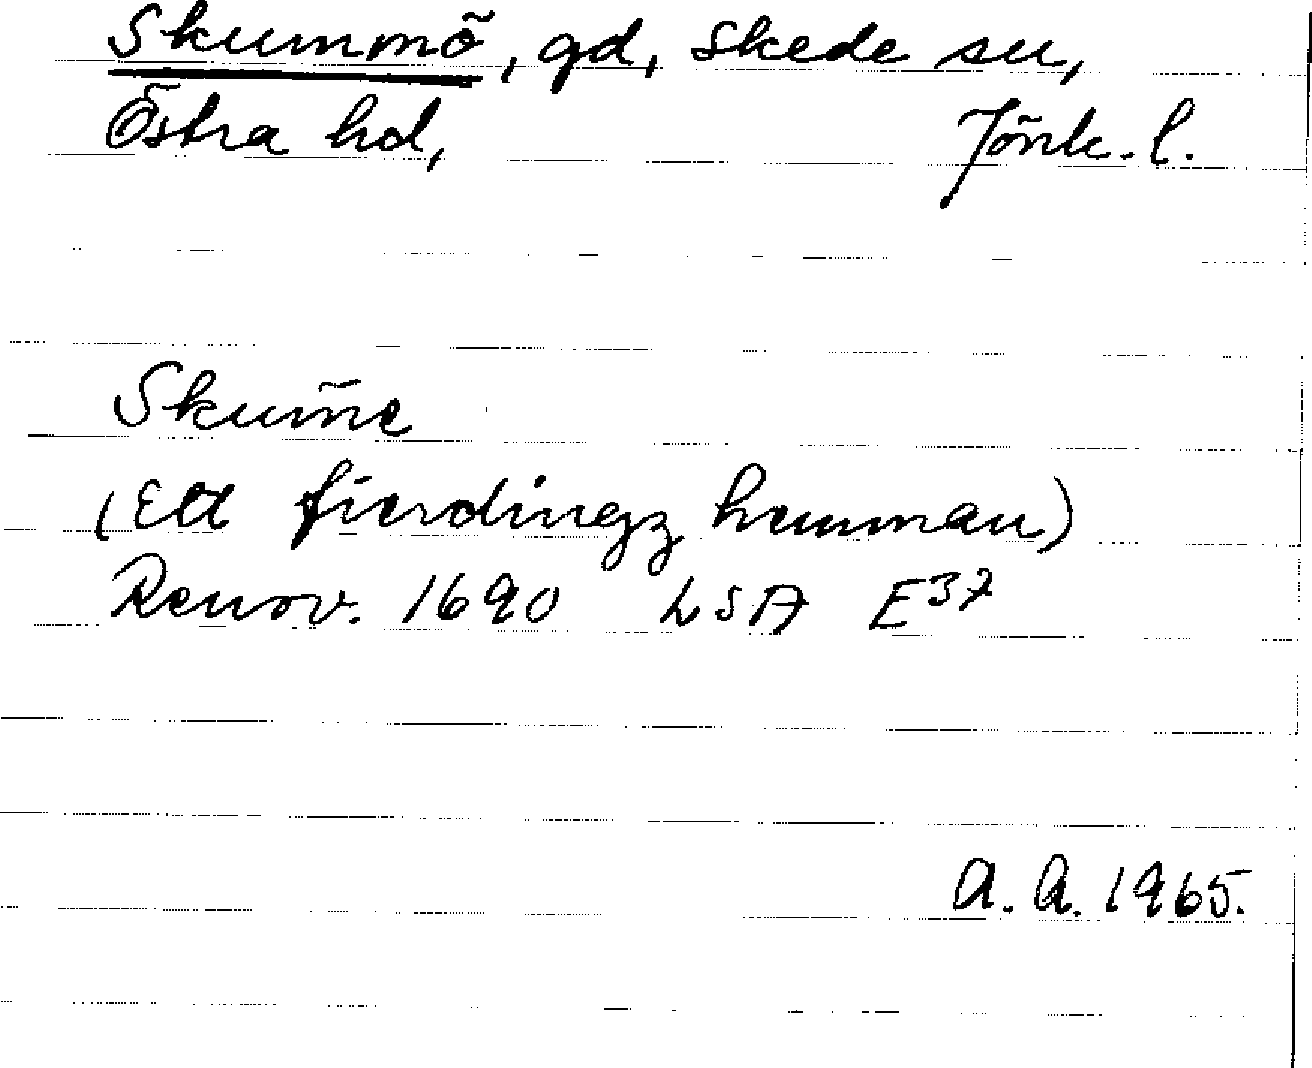 Skummö, gd, Skede sn,
Östra hd, Jönk. l.
Skum̃e
(Ett fierdingz hemman)
Renov. 1690 LSA E37
A. A. 1965.